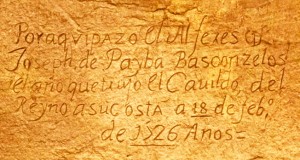 Por aqui pazo el Alferes Dn
Joseph de Payba Basconzelos
el año que trujo el Cauildo del
Reyno a su costa a 18 de feb°
de 1726 Años=